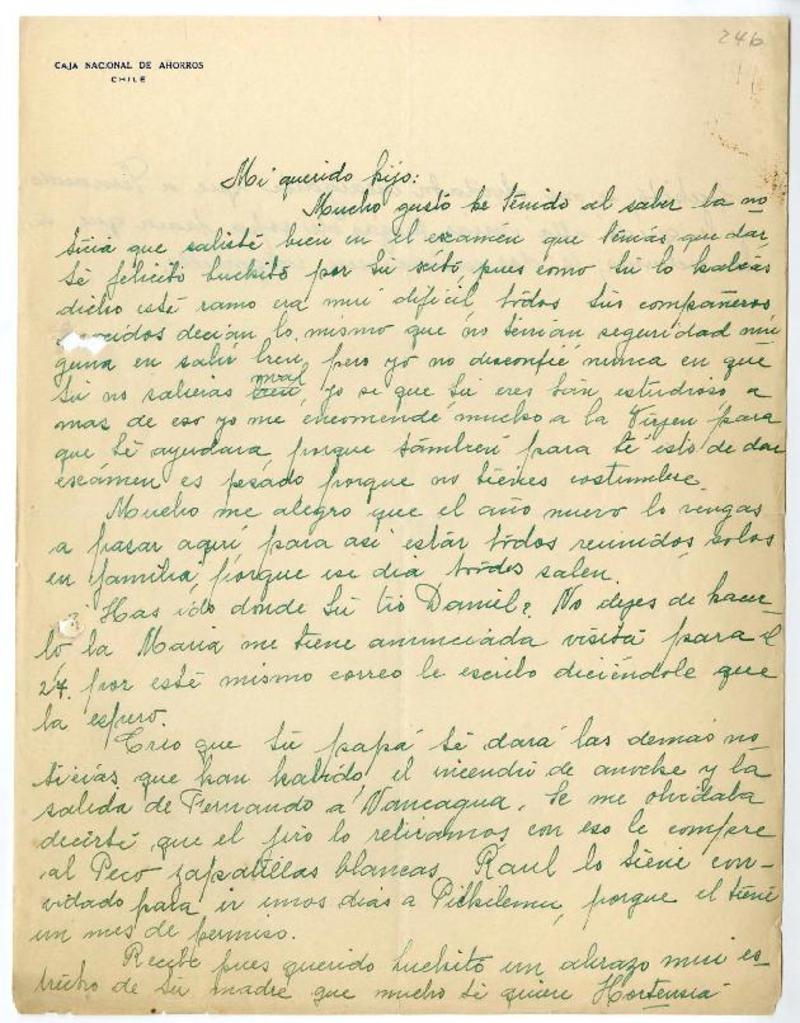 246
CAJA NACIONAL DE AHORROS
CHILE
Mi querido hijo:
Mucho gusto he tenido al saber la no
ticia que saliste bien en el examen que tenias que dar,
te felicito Luchito por tu exito, pues como tu lo habias
dicho este ramo era mui dificil, todos tus compañeros
decian lo mismo que no tenian seguridad nin
guna en salir bien, pero yo no desconfié nunca en que
tu no salieras bien mal, yo se que tu eres tan estudioso a
mas de eso yo me encomendé mucho a la Virjen para
que te ayudara, porque tambien para ti esto de dar
examen es pesado porque no tienes costumbre.
Mucho me alegro que el año nuevo lo vengas
a pasar aquí, para asi estar todos reunidos, solos
en familia, porque ese dia todos salen.
Has ido donde tu tio Daniel? No dejes de hacer-
lo, la Maria me tiene anunciada visita para el
24, por este mismo correo le escribo diciéndole que
la espero.
Creo que tu papá te dará las demas no_
ticias que han habido, el incendio de anoche y la
salida de Fernando a Nancagua. Se me olvidaba
decirte que el lo retiramos, con eso le compre
al Peco zapatillas blancas. Raul lo tiene con-
vidado para ir unos dias a Pichilemu, porque el tiene
un mes de permiso.
Recibe pues querido Luchito un abrazo mui es_
trecho de tu madre que mucho te quiere Hortensia